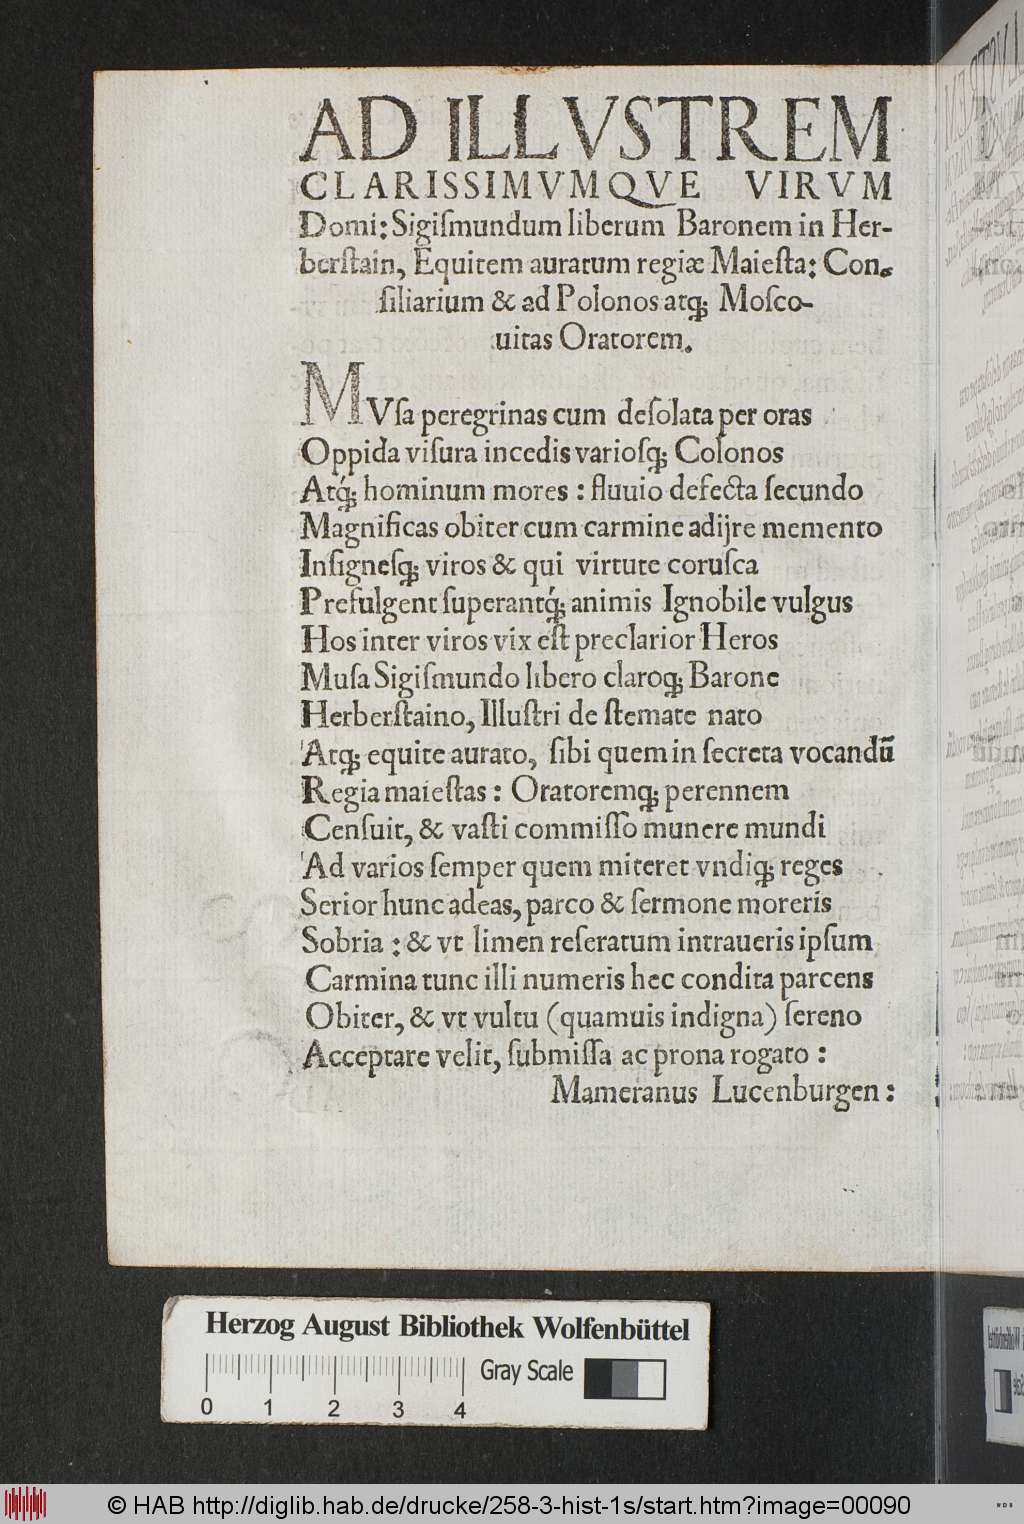 AD ILLVSTREM
CLARISSIMVMQVE VIRVM
Domi: Sigiſmundum liberum Baronem in Her-
berſtain, Equitem auratum regiæ Maieſta: Con-
ſiliarium & ad Polonos atq; Moſco-
uitas Oratorem.
MVſa peregrinas cum deſolata per oras
Oppida viſura incedis variosq; Colonos
Atq́; hominum mores : fluuio defecta ſecundo
Magnificas obiter cum carmine adijre memento
Inſigneſq; viros & qui virtute coruſca
Prefulgent ſuperantq́; animis Ignobile vulgus
Hos inter viros vix eſt preclarior Heros
Muſa Sigiſmundo libero claroq; Barone
Herberſtaino, Illuſtri de ſtemate nato
Atq; equite aurato, ſibi quem in ſecreta vocandũ
Regia maieſtas : Oratoremq; perennem
Cenſuit, & vaſti commiſſo munere mundi
Ad varios ſemper quem miteret vndiq; reges
Serior hunc adeas, parco & ſermone moreris
Sobria : & vt limen reſeratum intraueris ipſum
Carmina tunc illi numeris hec condita parcens
Obiter, & vt vultu (quamuis indigna) ſereno
Acceptare velit, ſubmiſſa ac prona rogato :
Mameranus Lucenburgen:
Herzog August Bibliothek Wolfenbüttel
Gray Scale
0 1 2 3 4
© HAB http://diglib.hab.de/drucke/258-3-hist-1s/start.htm?image=00090